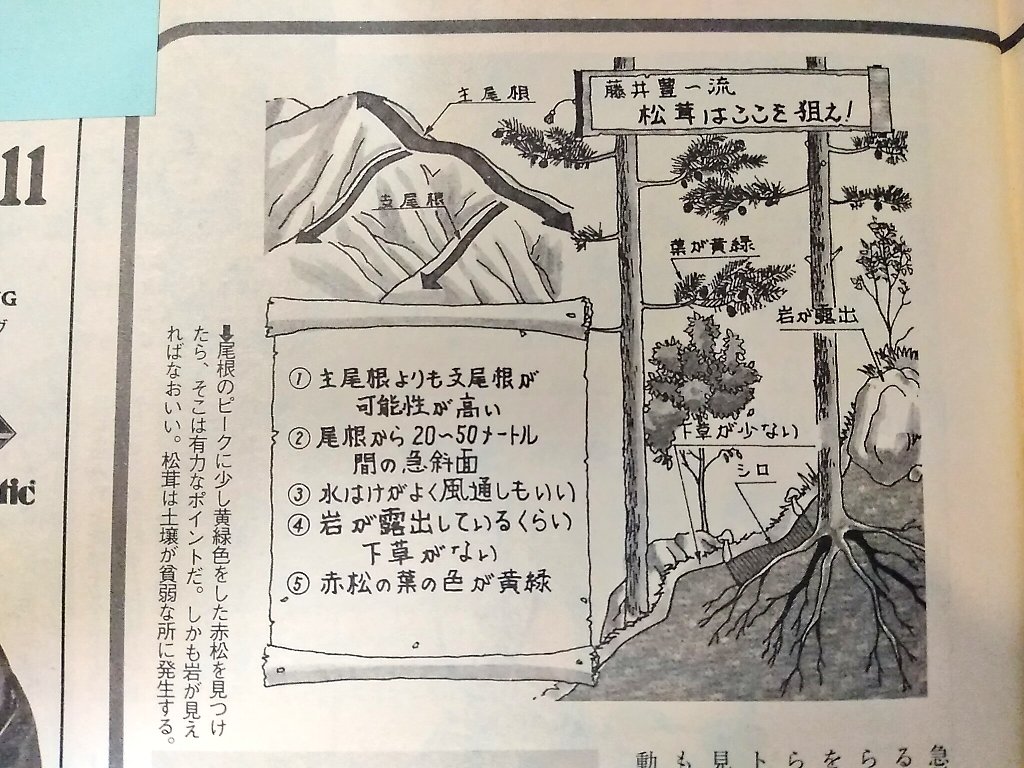 藤井豊一流
松茸はここを狙え!
主尾根
支尾根
葉が黄緑
岩が露出
下草が少ない
シロ
① 主尾根よりも支尾根が
可能性が高い
② 尾根から20〜50メートル
間の急斜面
③ 水はけがよく風通しもいい
④ 岩が露出しているくらい
下草がない
⑤ 赤松の葉の色が黄緑
⬇尾根のピークに少し黄緑色をした赤松を見つけ
たら、そこは有力なポイントだ。しかも岩が見え
ればなおいい。松茸は土壌が貧弱な所に発生する。
11
急
る
ら
を
ら
ト
見
も
動